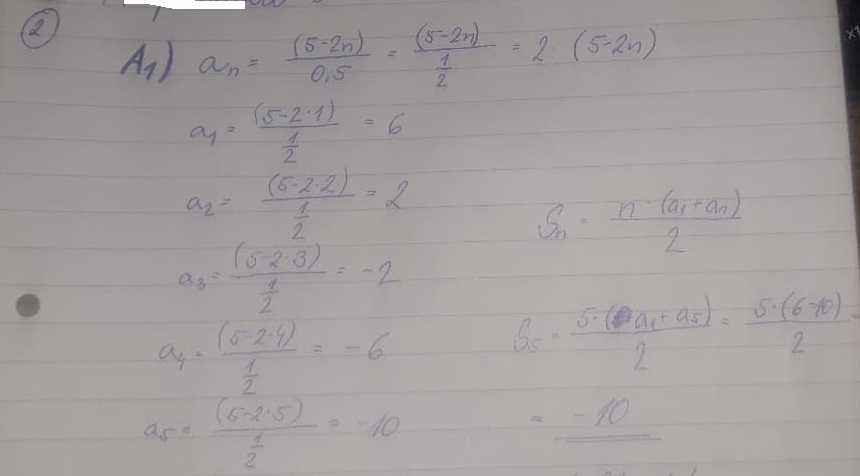 2
A1) an = (5-2n)/0,5 = (5-2n)/(1/2) = 2 (5-2n)
a1 = (5-2·1)/(1/2) = 6
a2 = (5-2·2)/(1/2) = 2
Sn = n·(a1+an)/2
a3 = (5-2·3)/(1/2) = -2
a4 = (5-2·4)/(1/2) = -6
S5 = 5·(a1+a5)/2 = 5·(6-10)/2
a5 = (5-2·5)/(1/2) = -10
= -10